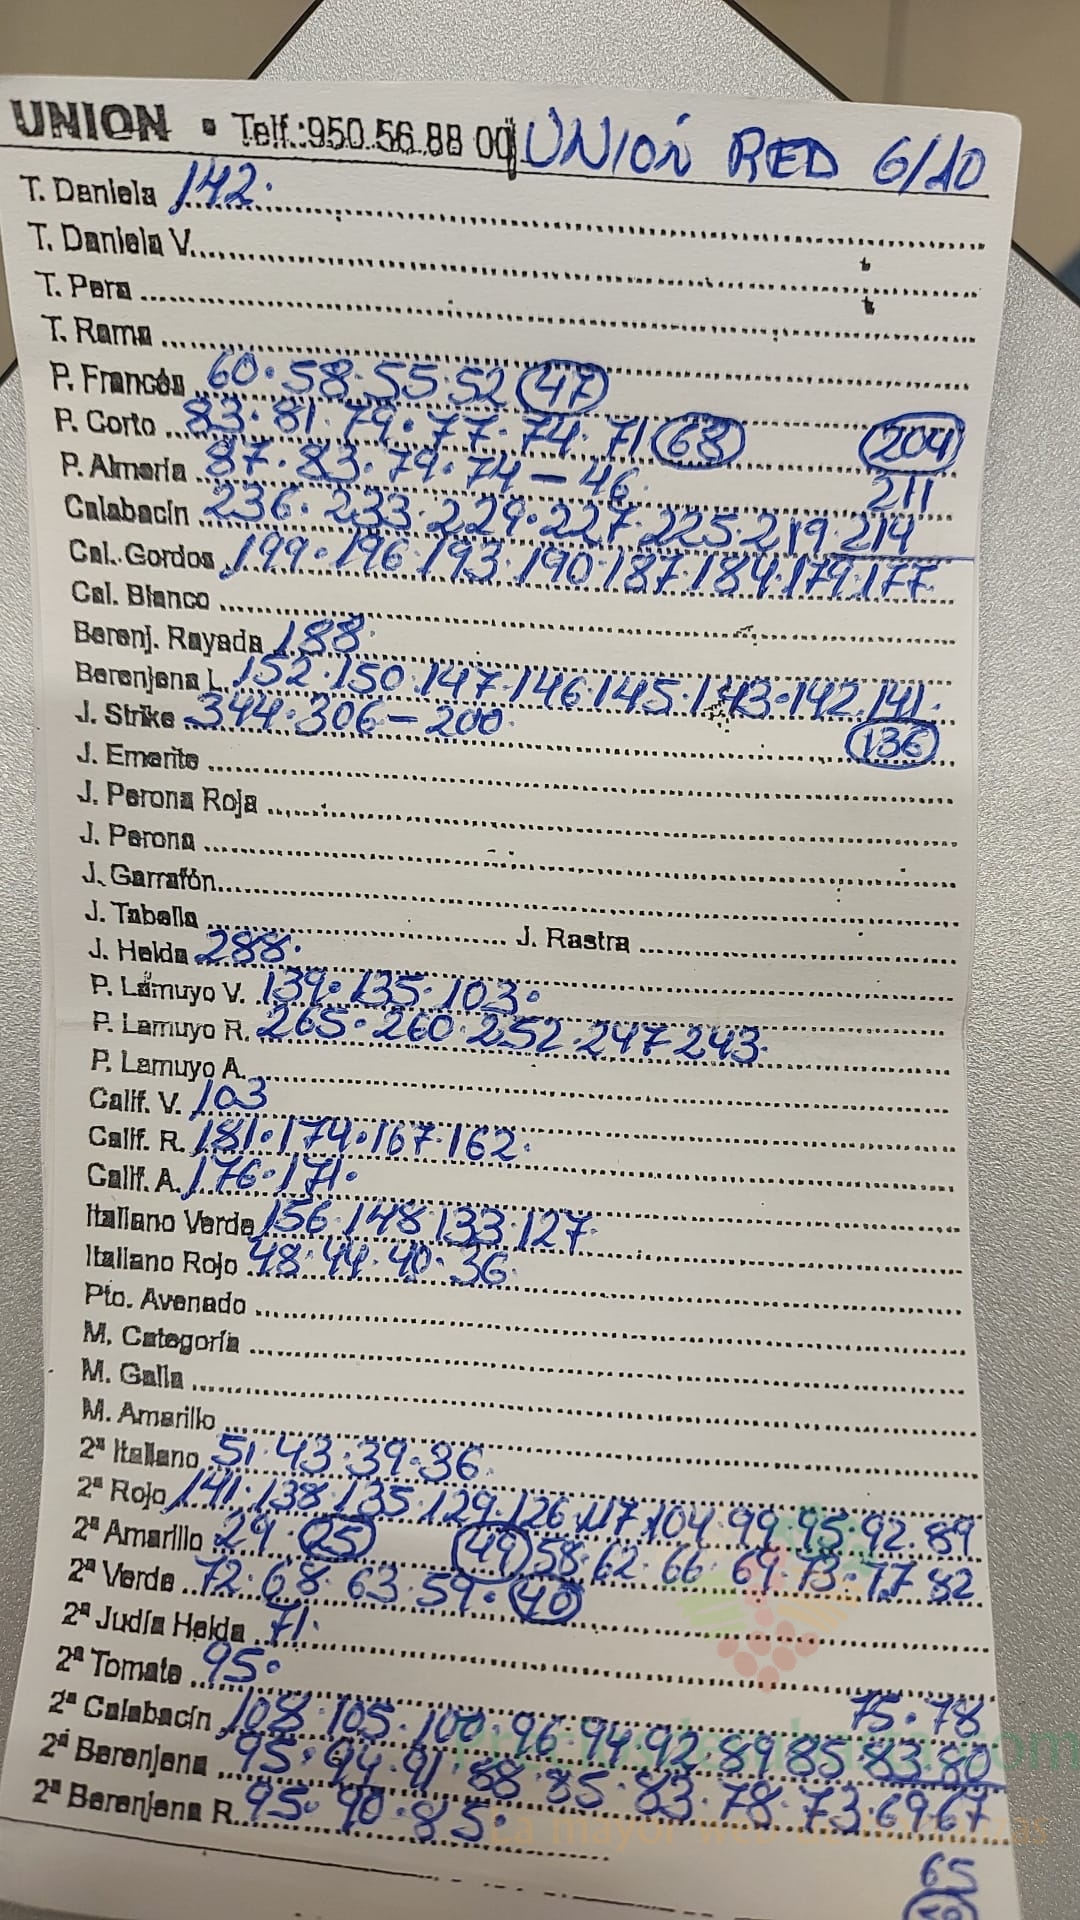 UNION • Telf.:950.56.88 00 UNIÓN RED 6/10
T. Daniela 142.
T. Daniela V.
T. Pera
T. Rama
P. Francés 60.58.55.52 (47)
P. Corto 83.81.79.77.74.71 (68) (204)
P. Almería 87.83.79.74-46. 211
Calabacín 236.233.229.227.225.219.214
Cal. Gordos 199.196.193.190.187.184.179.177
Cal. Blanco
Berenj. Rayada 188.
Berenjena L. 152.150.147.146.145.143.142.141.
J. Strike 344.306-200. (136)
J. Emerite
J. Perona Roja
J. Perona
J. Garrafón
J. Tabella J. Rastra
J. Helda 288.
P. Lamuyo V. 139.135.103.
P. Lamuyo R. 265.260.252.247.243.
P. Lamuyo A.
Calif. V. 103
Calif. R. 181.174.167.162.
Calif. A. 176.171.
Italiano Verde 156.148.133.127.
Italiano Rojo 48.44.40.36.
Pto. Avenado
M. Categoría
M. Galia
M. Amarillo
2ª Italiano 51.43.39.36.
2ª Rojo 141.138.135.129.126.117.104.99.95.92.89
2ª Amarillo 29.(25) (49) 58.62.66.69.73.77.82
2ª Verde 72.68.63.59.(40)
2ª Judía Helda 71.
2ª Tomate 95. 75.78
2ª Calabacín 108.105.100.96.94.92.89.85.83.80
2ª Berenjena 95.94.91.88.85.83.78.73.69.67
2ª Berenjena R. 95.90.85.
65
La mayor web de